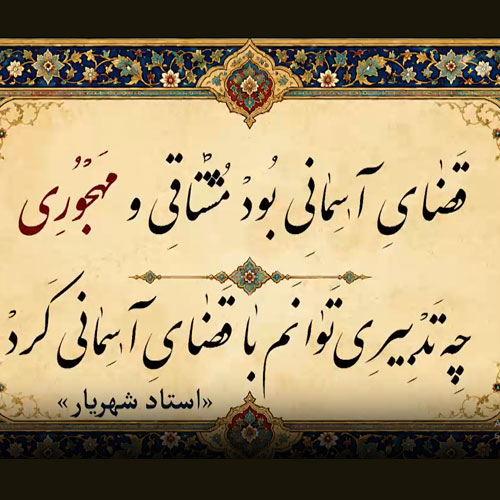 قَضایِ آسِمانِی بُودْ مُشتاقِی و مَهْجُورِی
چِه تَدْبِیرِی تَوانَم با قَضایِ آسِمانِی کَردْ
«استاد شهریار»